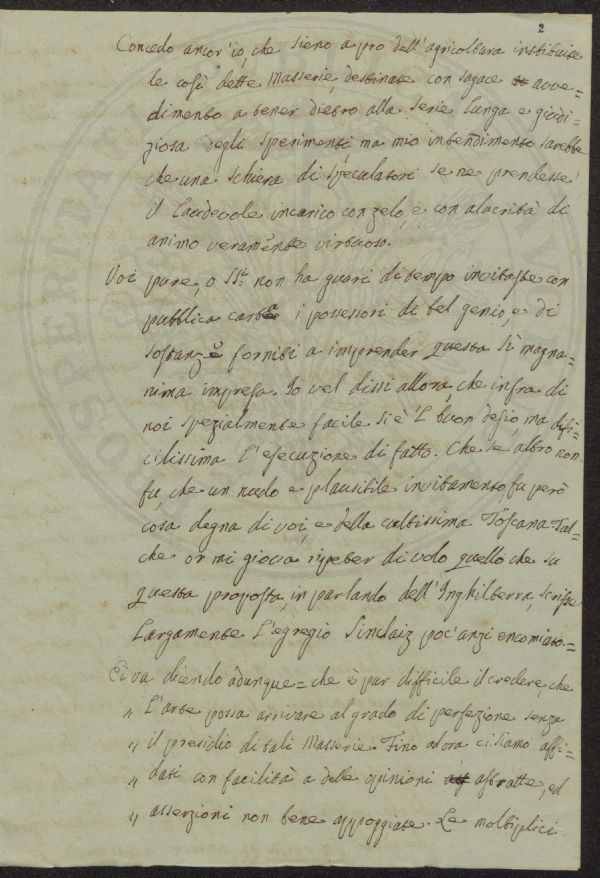 2
Concedo ancor'io, che sieno a pro dell'agricoltura instituite
le così dette Masserie, destinate con sagace avve=
dimento a tener dietro alla serie lunga e giudi=
ziosa degli sperimenti ma mio intendimento sarebbe
che una schiera di speculatori se ne prendesse
il laudevole incarico con zelo, e con alacrità di
animo veramente virtuoso.
Voi pure, o SS.ri non ha guari di tempo invitaste con
pubblica carta i possessori di bel genio, e di
sostanze forniti a imprender questa sì magna=
nima impresa. Io vel dissi allora, che infra di
noi spezialmente facile si è 'l buon desio, ma difi=
cilissima l'esecuzione di fatto. Che se altro non
fu, che un nudo e plausibile invitamento, fu però
cosa degna di voi, e della cultissima Toscana. Tal=
che or mi giova ripeter di volo quello che su
questa proposta, in parlando dell'Inghilterra, scrisse
largamente l'egregio Sinclaiz poc'anzi encomiato.=
Ei va dicendo adunque= che è pur difficile il credere, che
„ l'arte possa arrivare al grado di perfezione senza
„ il presidio di tali Masserie. Fino ad ora ci siamo affi=
„ dati con facilità a delle opinioni astratte, ed
„ asserzioni non bene appoggiate. Le moltiplici